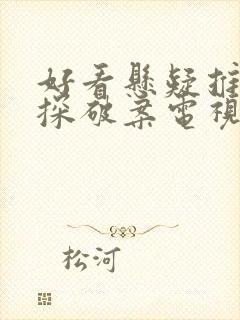 好看懸疑推
探破案電視
松河